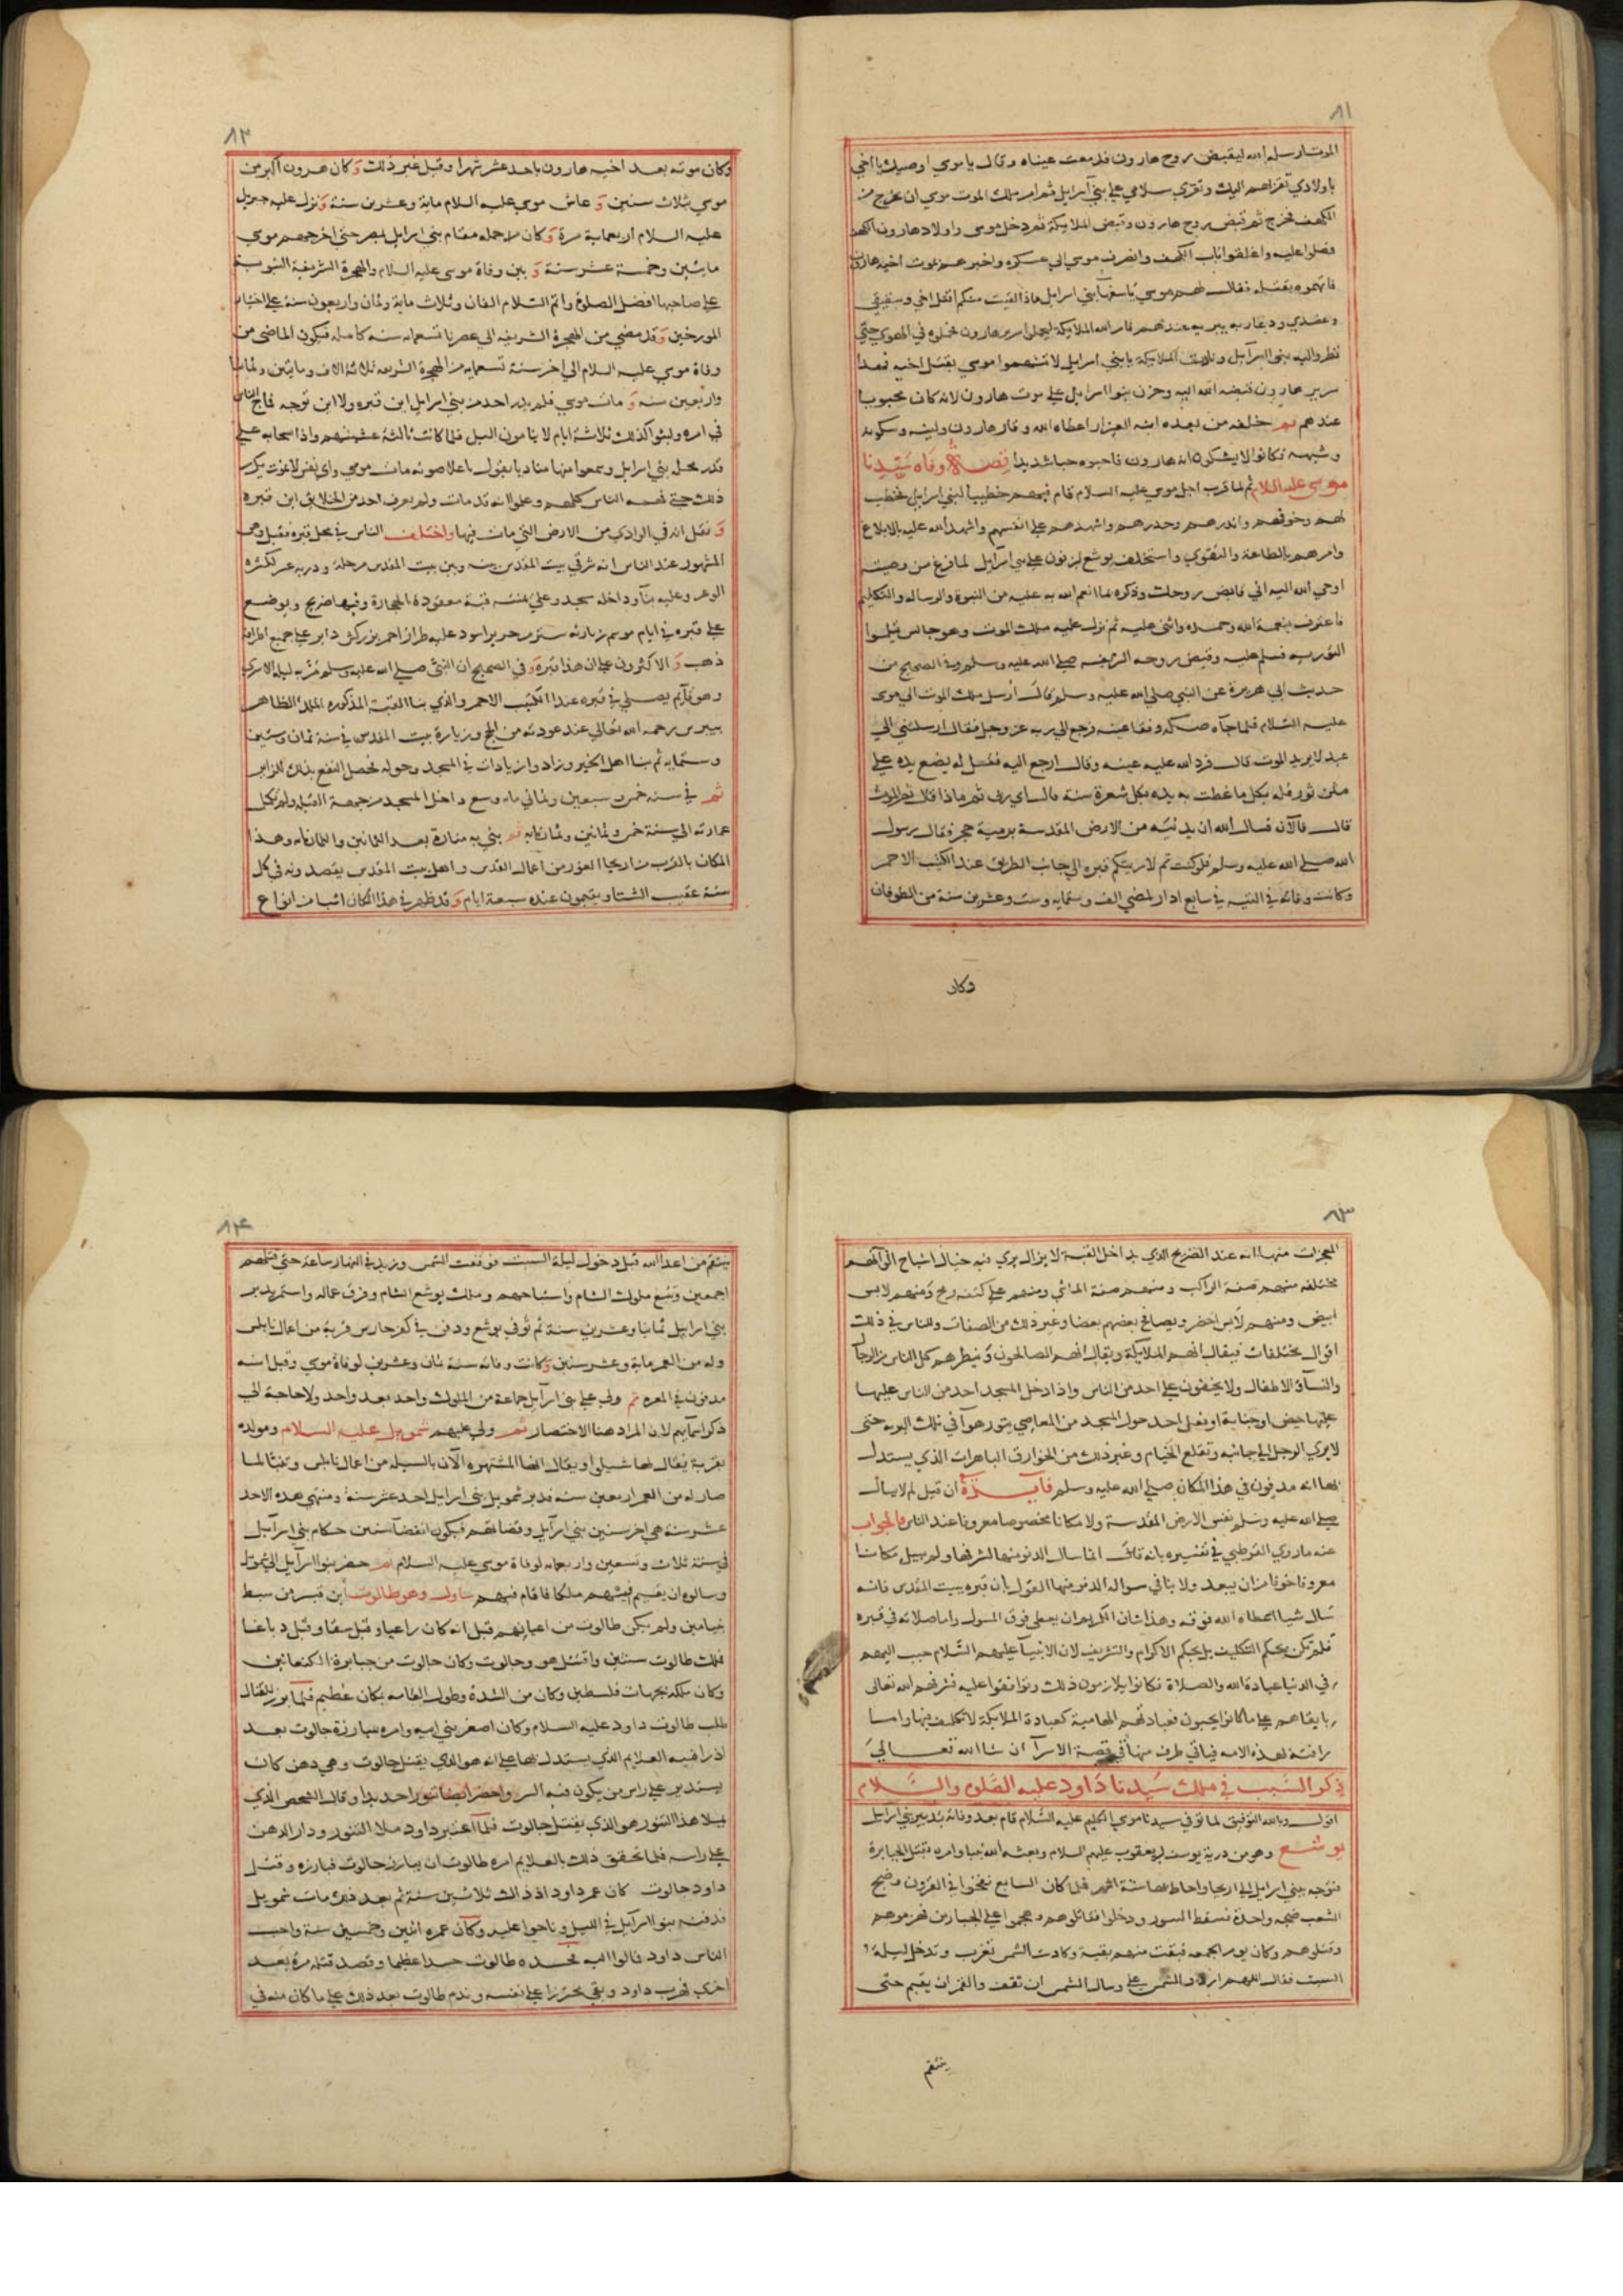 ٨١
الموت ارسله الله ليقبض روح هارون فدمعت عيناه وقال يا موسي اوصيك يا اخي
باولادي تقراهم اليك وتقري سلامي علي بني اسرايل ثم امر ملك الموت موسي ان يخرج من
الكهف فخرج ثم قبض روح هارون وقبض الملايكة ثم دخل موسي واولاد هارون الكهف
فصلوا عليه واغلقوا باب الكهف وانصرف موسي الي عسكره واخبرهم بموت اخيه هارون
فاتهموه بقتله فقال لهم موسي يا سفها بني اسرايل ماذا لقيت منكم اقتل اخي وشقيقي
وعضدي عندهم فامر الله الملايكة ليحملوا سرير هارون فحملوه في الهوي حتي
نظروا اليه بنوا اسرآيل ونادت الملايكة يا بني اسرايل لا تتهموا موسي بقتل اخيه فهذا
سرير هارون قبضه الله اليه وحزن بنوا اسرايل علي موت هارون لانه كان محبوبا
عندهم ثم خلفه من بعده ابنه العيزار اعطاه الله وقار هارون ولينه وسكونه
وشبهه فكانوا لا يشكون انه هارون فاحبوه حبا شديدا قصة وفاة سيدنا
موسي عليه السلام ثم لما قرب اجل موسي عليه السلام قام فيهم خطيبا لبني اسرايل فخطب
لهم وخوفهم وانذرهم وحذرهم واشهدهم علي انفسهم واشهد الله عليه بالابلاغ
وامرهم بالطاعة والتقوي واستخلف يوشع بن نون علي بني اسرآيل لما فرغ من وصيته
اوحي الله اليه اني قابض روحك وذكره بما انعم الله به عليه من النبوة والرسالة والتكليم
فاعترف بنعمة الله وحمده واثني عليه ثم نزل عليه ملك الموت وهو جالس
فسلم عليه وقبض روحه الشريفه صلي الله عليه وسلم وفي الصحيح من
حديث ابي هريرة عن النبي صلي الله عليه وسلم قال أرسل ملك الموت الي موسي
عليه السلام فلما جآه صكه ففقا عينه فرجع الي ربه عز وجل فقال ارسلتني الي
عبد لا يريد الموت قال فرد الله عليه عينه وقال ارجع اليه فقل له يضع يده علي
متن ثور فله بكل ما غطت به يده بكل شعرة سنة قال اي رب ثم ماذا قال ثم الموت
قال فالآن فسال الله ان يدنيه من الارض المقدسة برمية حجر فقال رسول
الله صلي الله عليه وسلم فلو كنت ثم لاريتكم قبره الي جانب الطريق عند الكثيب الاحمر
وكانت وفاته في التيه في سابع ادار لمضي الف وستمايه وست وعشرين سنة من الطوفان
وكان
٨٢
وكان موته بعد اخيه هارون باحد عشر شهرا وقيل غير ذلك وكان هرون اكبر من
موسي بثلاث سنين وعاش موسي عليه السلام ماية وعشرين سنة ونزل عليه جبريل
عليه السلام اربعماية مرة وكان جمله مقام بني اسرايل بمصر حتي اخرجهم موسي
مايتين وخمسة عشر سنة وبين وفاة موسي عليه السلام والهجرة الشريفة النبوية
علي صاحبها افضل الصلوة واتم السلام الفان وثلاث ماية وثمان واربعون سنة علي اختيار
المورخين وقد مضي من الهجرة الشريفه الي عصرنا تسعمايه سنه كامله فيكون الماضي من
وفاة موسي عليه السلام الي اخر سنة تسعمايه من الهجرة الشريفه ثلاثة الاف ومايتين وثمانيا
واربعين سنه ومات موسي فلم يدر احد من بني اسرايل اين قبره ولا اين توجه فماج الناس
في امره ولبثوا كذلك ثلاثة ايام لا ينامون الليل فلما كانت ثالثة غشيتهم واذا سحابه علي
قدر محلة بني اسرايل وسمعوا فيها مناديا يقول باعلا صوته مات موسي واي نفس لا تموت يكرر
ذلك حتي فهمه الناس كلهم وعلموا انه قد مات ولم يعرف احد من الخلايق اين قبره
ونقل انه في الوادي من الارض التي مات فيها واختلف الناس في محل قبره فقيل وهو
المشهور عند الناس انه شرقي بيت المقدس بينه وبين بيت المقدس مرحلة ودربه عسر لكثرة
الوعر وعليه بنآ وداخله مسجد وعلي يمنته قبة معقودة بالحجارة وفيها ضريح ويوضع
علي قبره في ايام موسم زيارته ستر من حرير اسود عليه طراز احمر مزركش داير علي جميع اطرافه
ذهب والاكثرون علي ان هذا قبره وفي الصحيح ان النبي صلي الله عليه وسلم مر به ليلة الاسري
وهو قآيم يصلي في قبره عند الكثيب الاحمر والذي بنا القبة المذكوره الملك الظاهر
بيبرس رحمه الله تعالي عند عودته من الحج وزيارة بيت المقدس في سنة ثمان وستين
وستمايه ثم بنا اهل الخير وزادوا زيادات في المسجد وحوله فحصل النفع بذلك للزاير
ثم في سنه خمس وسبعين وثماني مايه وسع داخل المسجد من جهة القبله ولم تكمل
عمارته الي سنة خمس وثمانين وثمانمايه ثم بني به منارة بعد الثمانين والثمانمايه وهذا
المكان بالقرب من اريحا الغور من اعمال القدس واهل بيت المقدس يقصدونه في كل
سنة عقب الشتا ويقيمون عنده سبعة ايام وقد ظهر في هذا المكان اشيا من انواع
٨٣
المعجزات منها انه عند الضريح الذي بداخل القبة لا يزال يري فيه خيال اشباح الوانهم
مختلفه منهم صفة الراكب ومنهم صفة الماشي ومنهم علي كتفه رمح ومنهم لابس
ابيض ومنهم لابس اخضر ويصافح بعضهم بعضا وغير ذلك من الصفات وللناس في ذلك
اقوال مختلفات فيقال انهم الملايكة ويقال انهم الصالحون وينظرهم كل الناس من الرجال
والنسآ والاطفال ولا يخفون علي احد من الناس واذا دخل المسجد احد من الناس عليها
عليها حيض او جنابة او فعل احد حول المسجد من المعاصي يثور هوآ في تلك البريه حتي
لا يري الرجل الي جانبه وتقلع الخيام وغير ذلك من الخوارق الباهرات الذي يستدل
بها انه مدفون في هذا المكان صلي الله عليه وسلم فآيدة ان قيل لم لا يسال
صلي الله عليه وسلم نفس الارض المقدسة ولا مكانا مخصوصا معروفا عند الناس فالجواب
عنه ما روي القرطبي في تفسيره بانه قال انما سال الدنو منها لشرفها ولم يسل مكانا
معروفا خوفا من ان يعبد ولا ينافي سواله الدنو منها القول بان قبره ببيت المقدس فانه
سال شيا اعطاه الله فوقه وهذا شان الكريم ان يعطي فوق المسول واما صلاته في قبره
فلم تكن بحكم التكليف بل بحكم الاكرام والتشريف لان الانبيآ عليهم السلام حبب اليهم
في الدنيا عبادة الله والصلاة فكانوا يلازمون ذلك وتوافقوا عليه فشرفهم الله تعالي
بابقاهم علي ما كانوا يحبون فعبادتهم الهامية كعبادة الملايكة لا تكليف فيها واما
رافته لهذه الامه فياتي طرف منها في قصة الاسرآ ان شا الله تعالي
ذكر السبب في ملك سيدنا داود عليه الصلوة والسلام
اقول وبالله التوفيق لما توفي سيدنا موسي الكليم عليه السلام قام بعد وفاته بتدبير بني اسرايل
يوشع وهو من ذرية يوسف بن يعقوب عليهم السلام وبعثه الله نبيا وامره بقتل الجبابرة
فتوجه ببني اسرايل الي اريحا واحاط بها ستة اشهر فلما كان السابع نفخوا في القرون وضج
الشعب ضجه واحدة فسقط السور ودخلوا فقاتلوهم وهجموا علي الجبارين فهزموهم
وقتلوهم وكان يوم الجمعه فبقيت منهم بقية وكادت الشمس تغرب وتدخل ليلة
السبت فقال اللهم اردد الشمس علي وسال الشمس ان تقف والقمر ان يقيم حتي
ينتقم
٨٤
ينتقم من اعدا الله قبل دخول ليلة السبت فوقفت الشمس وزيد في النهار ساعة حتي قتلهم
اجمعين وتتبع ملوك الشام واستباحهم وملك يوشع الشام وفرق عماله واستمر يدبر
بني اسرايل ثمانيا وعشرين سنة ثم توفي يوشع ودفن في كفر حارس قرية من اعمال نابلس
وله من العمر ماية وعشر سنين وكانت وفاته سنة ثمان وعشرين لوفاة موسي وقيل انه
مدفون في المعره ثم ولي علي بني اسرآيل جماعة من الملوك واحد بعد واحد ولا حاجة الي
ذكر اسمآيهم لان المراد هنا الاختصار ثم ولي عليهم شمويل عليه السلام ومولده
بقرية يقال لها شيلو ويقال انها المشتهره الآن بالسيله من اعمال نابلس وتنبا لما
صار له من العمر اربعين سنه فدبر شمويل بني اسرايل احد عشر سنة ومنتهي هذه الاحد
عشر سنة هي اخر سنين بني اسرآيل وقضاتهم فيكون انقضآ سنين حكام بني اسرآيل
في سنة ثلاث وتسعين واربعمايه لوفاة موسي عليه السلام ثم حضر بنوا اسرآيل الي شمويل
وسالوه ان يقيم فيهم ملكا فاقام فيهم شاول وهو طالوت ابن قيس من سبط
بنيامين ولم يكن طالوت من اعيانهم قيل انه كان راعيا وقيل سقا وقيل دباغا
فملك طالوت سنتين واقتتل هو وجالوت وكان جالوت من جبابرة الكنعانين
وكان ملكه بجهات فلسطين وكان من الشدة وطول القامه بمكان عظيم فلما برز للقتال
طلب طالوت داود عليه السلام وكان اصغر بني ابيه وامره بمبارزة جالوت بعد
اذ راي فيه العلايم الذي يستدل بها علي انه هو الذي يقتل جالوت وهي دهن كان
يستدير علي راس من يكون فيه السر واحضر ايضا تنور احديدا وقال الشخص الذي
يملا هذا التنور هو الذي يقتل جالوت فلما اعتبر داود ملا التنور ودار الدهن
علي راسه فلما تحقق ذلك بالعلايم امره طالوت ان يبارز جالوت فبارزه وقتل
داود جالوت كان عمر داود اذ ذاك ثلاثين سنة ثم بعد ذلك مات شمويل
فدفنه بنوا اسرآيل في الليل وناحوا عليه وكان عمره اثنين وخمسين سنة واحب
الناس داود ومالوا اليه فحسده طالوت حسدا عظيما وقصد قتله مرة بعد
اخري فهرب داود وبقي محترزا علي نفسه وندم طالوت بعد ذلك علي ما كان منه في